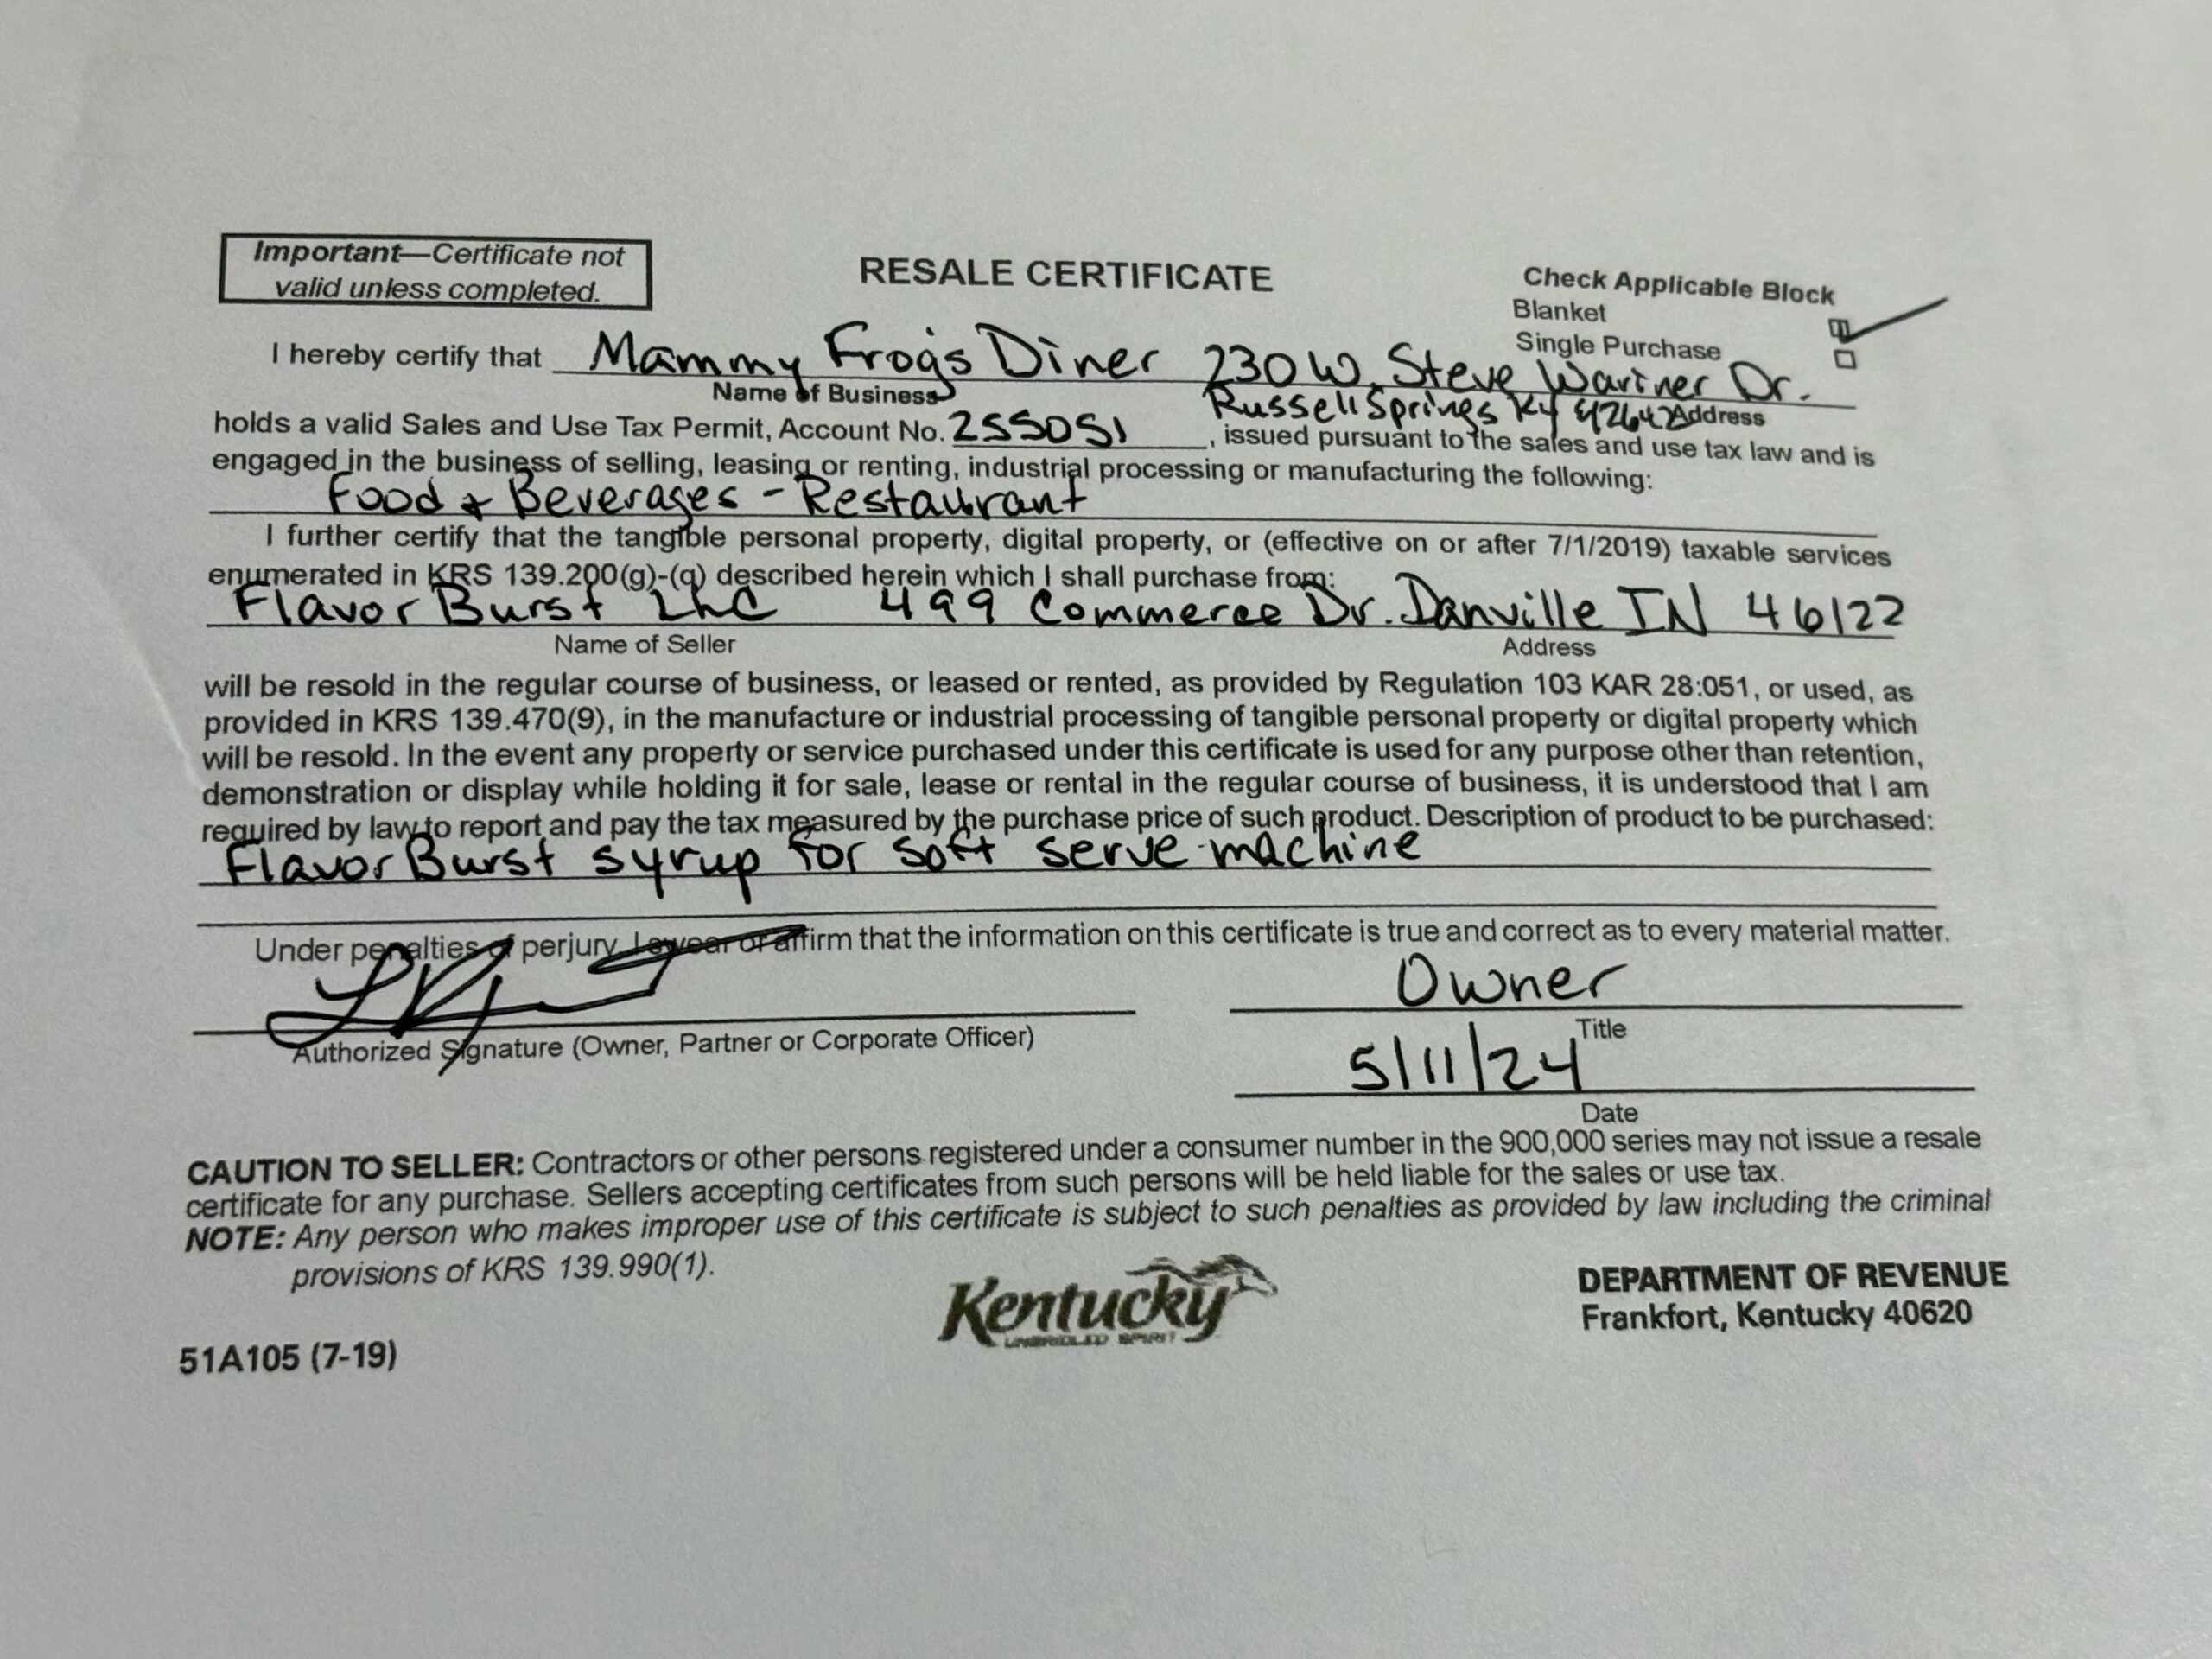 Important—Certificate not
valid unless completed.
RESALE CERTIFICATE
Check Applicable Block
Blanket
Single Purchase
I hereby certify that Mammy Frog's Diner 230 W. Steve Wariner Dr.
Name of Business
Russell Springs Ky 42642 Address
holds a valid Sales and Use Tax Permit, Account No. 255051, issued pursuant to the sales and use tax law and is
engaged in the business of selling, leasing or renting, industrial processing or manufacturing the following:
Food + Beverages - Restaurant
I further certify that the tangible personal property, digital property, or (effective on or after 7/1/2019) taxable services
enumerated in KRS 139.200(g)-(q) described herein which I shall purchase from:
Flavor Burst LLC 499 Commerce Dr. Danville IN 46122
Name of Seller Address
will be resold in the regular course of business, or leased or rented, as provided by Regulation 103 KAR 28:051, or used, as
provided in KRS 139.470(9), in the manufacture or industrial processing of tangible personal property or digital property which
will be resold. In the event any property or service purchased under this certificate is used for any purpose other than retention,
demonstration or display while holding it for sale, lease or rental in the regular course of business, it is understood that I am
required by law to report and pay the tax measured by the purchase price of such product. Description of product to be purchased:
Flavor Burst syrup for soft serve machine
Under penalties of perjury, I swear or affirm that the information on this certificate is true and correct as to every material matter.
Owner
Authorized Signature (Owner, Partner or Corporate Officer) Title
5/11/24
Date
CAUTION TO SELLER: Contractors or other persons registered under a consumer number in the 900,000 series may not issue a resale
certificate for any purchase. Sellers accepting certificates from such persons will be held liable for the sales or use tax.
NOTE: Any person who makes improper use of this certificate is subject to such penalties as provided by law including the criminal
provisions of KRS 139.990(1).
Kentucky
UNBRIDLED SPIRIT
DEPARTMENT OF REVENUE
Frankfort, Kentucky 40620
51A105 (7-19)